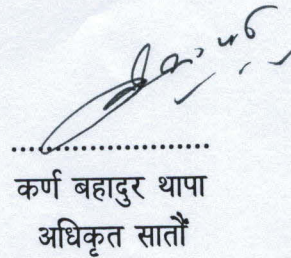 ....................
कर्ण बहादुर थापा
अधिकृत सातौं